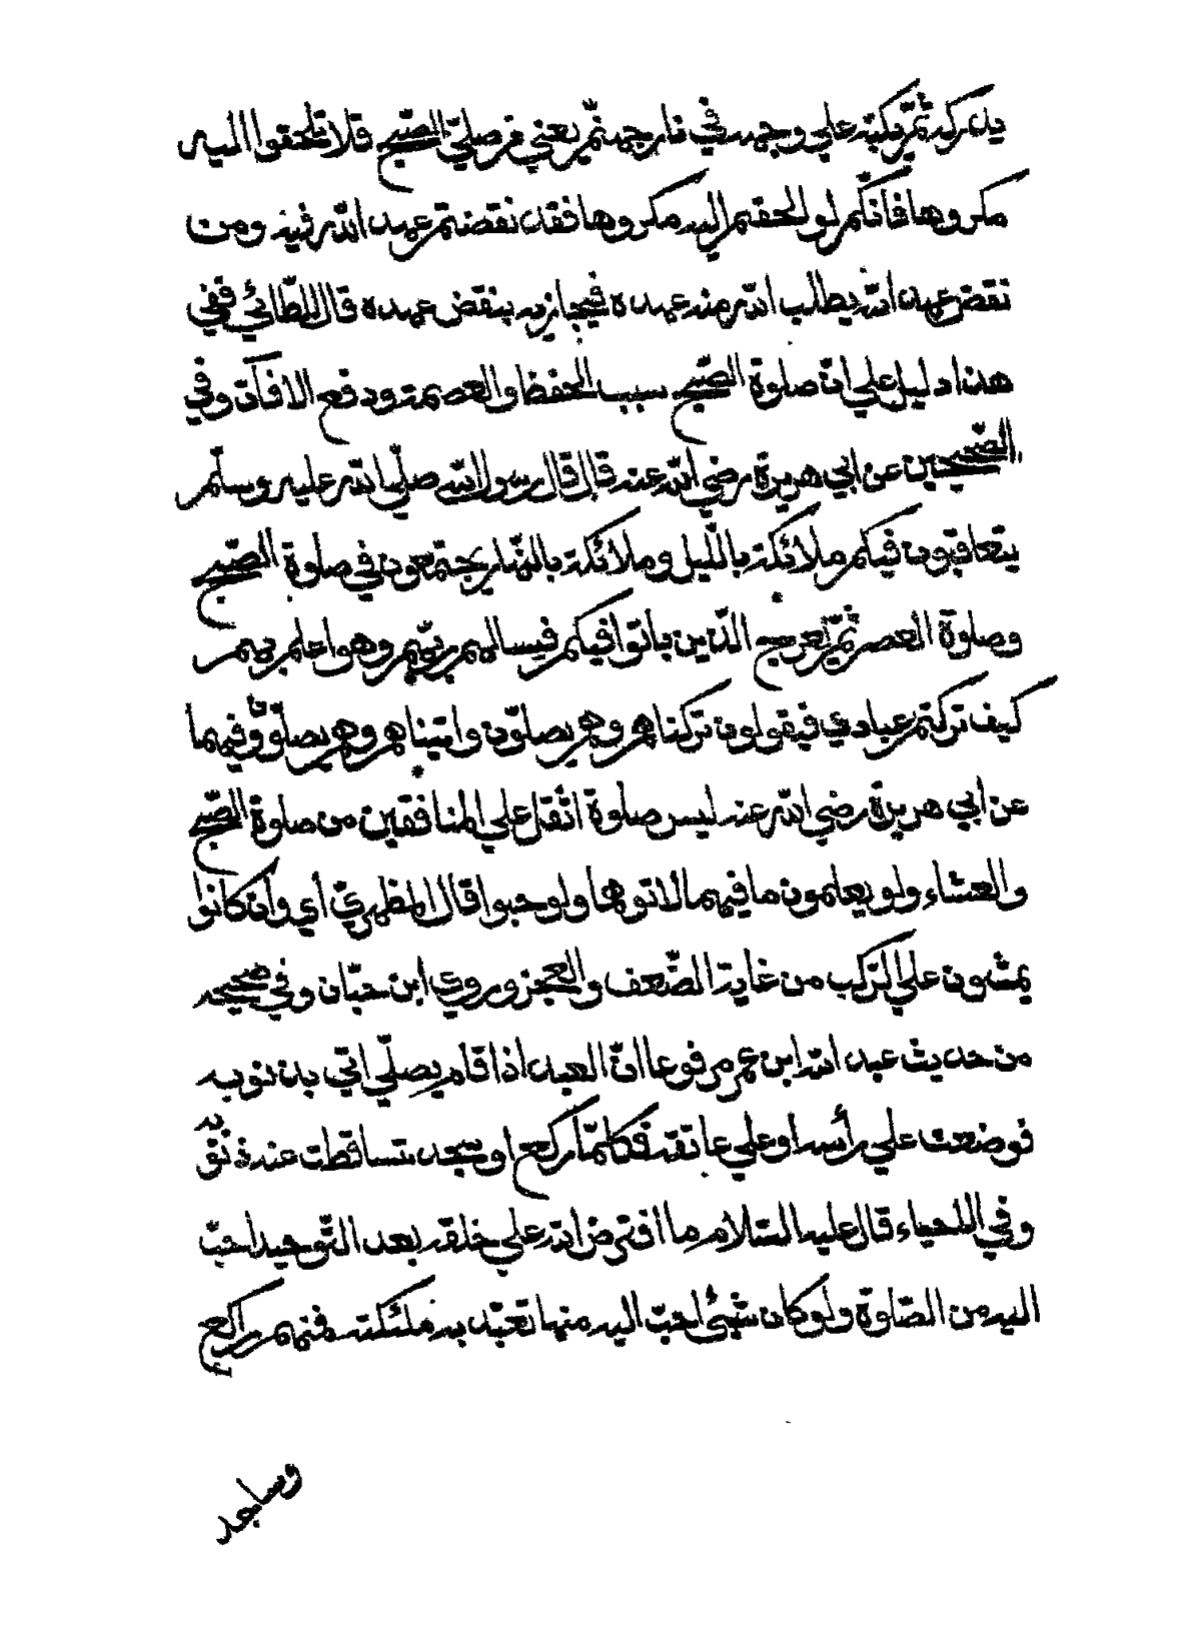 يدركه ثمّ يكبّه على وجهه في نار جهنّم يعني من صلّي الصّبح فلا تلحقوا اليه
مكروها فانّكم لو الحقتم اليه مكروها فقد نقضتم عهد اللّه فيه ومن
نقض عهد اللّه يطلب اللّه منه عهده فيجازيه بنقض عهده قال الطّائي ففي
هذا دليل علي انّ صلوة الصّبح سبب الحفظ والعصمة ودفع الافآت وفي
الصّحيحين عن ابي هريرة رضي اللّه عنه قال قال رسول اللّه صلّي اللّه عليه وسلّم
يتعاقبون فيكم ملائكة باللّيل وملائكة بالنّهار يجتمعون في صلوة الصّبح
وصلوة العصر ثمّ يعرج الذّين باتوا فيكم فيسالهم ربّهم وهو اعلم بهم
كيف تركتم عبادي فيقولون تركناهم وهم يصلّون واتيناهم وهم يصلّون وفيهما
عن ابي هريرة رضي اللّه عنه ليس صلوة اثقل علي المنافقين من صلوة الصّبح
والعشاء ولو يعلمون ما فيهما لاتوهما ولو حبوا قال المظهريّ أي وان كانوا
يمشون علي الرّكب من غاية الضّعف والعجز وروي ابن حبّان وفي صحيحه
من حديث عبد اللّه ابن عمر مرفوعا انّ العبد اذا قام يصلّي اتي بذنوبه
فوضعت علي رأسه او علي عاتقه فكلمّا ركع او سجد تساقطت عنه
وفي الاحياء قال عليه السّلام ما افترض اللّه علي خلقه بعد التّوحيد احبّ
اليه من الصّلوة ولو كان شيئ احبّ اليه منها تعبّد به ملئكته فمنهم راكع
وساجد